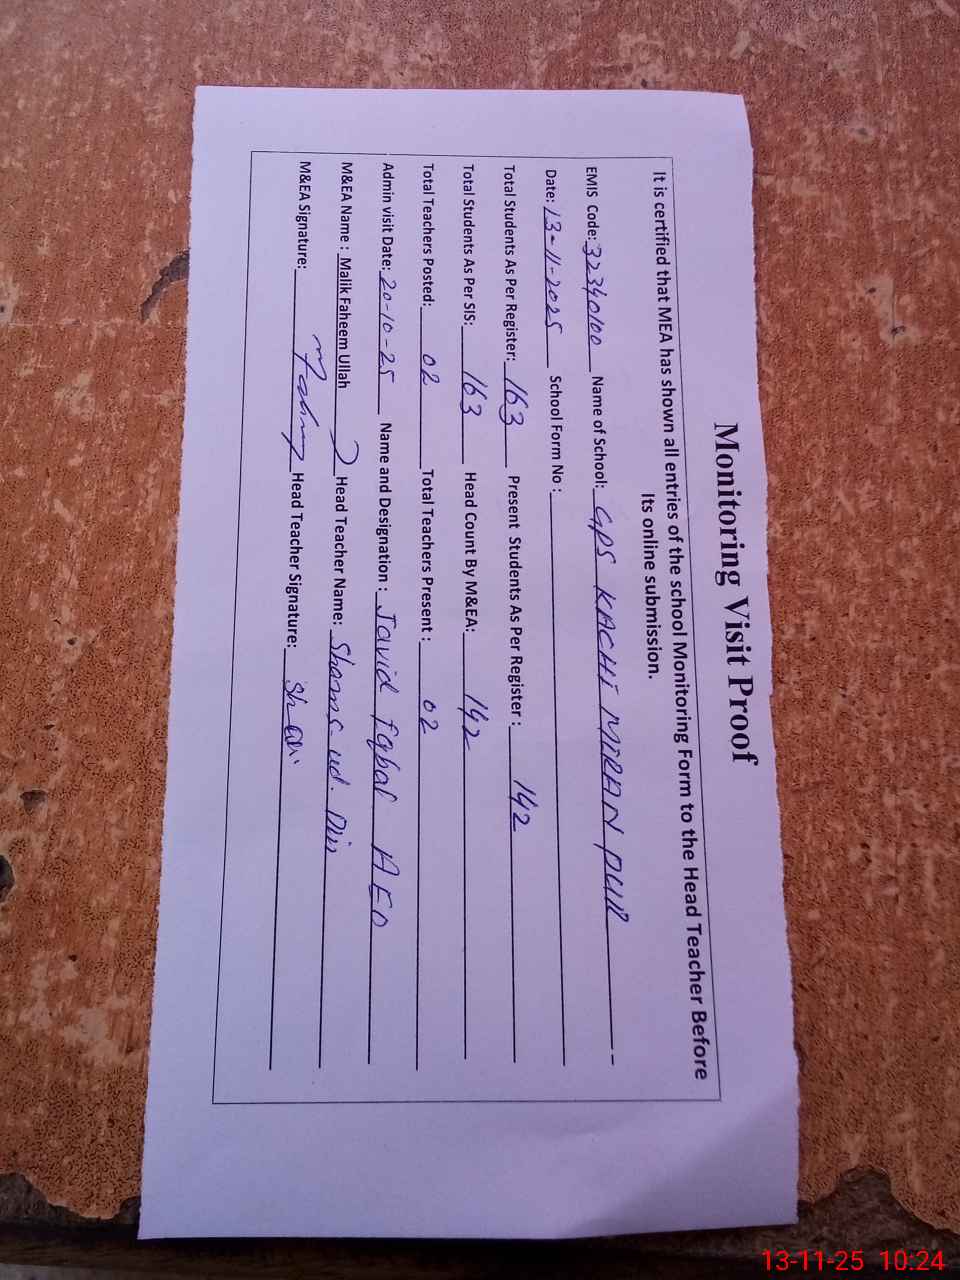 Monitoring Visit Proof
It is certified that MEA has shown all entries of the school Monitoring Form to the Head Teacher Before
Its online submission.
EMIS Code: 32340100 Name of School: GPS KACHI MIRAN PUR
Date: 13-11-2025 School Form No :
Total Students As Per Register: 163 Present Students As Per Register : 142
Total Students As Per SIS: 163 Head Count By M&EA: 142
Total Teachers Posted: 02 Total Teachers Present : 02
Admin visit Date: 20-10-25 Name and Designation : Javid Iqbal AEO
M&EA Name : Malik Faheem Ullah Head Teacher Name: Shams. ud. Din
M&EA Signature: Head Teacher Signature:
13-11-25 10:24